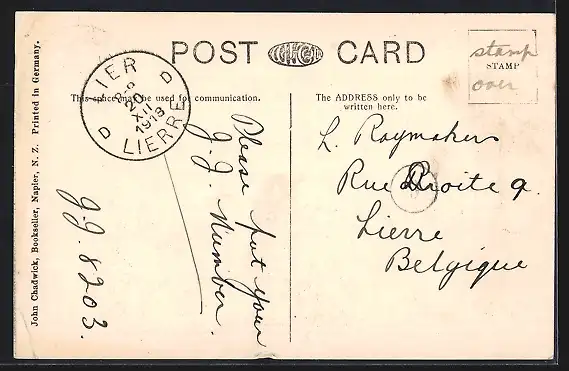 POST CARD
stamp
STAMP
over
This space may be used for communication.
The ADDRESS only to be
written here.
LIER
8-9
20
XII
1913
LIERRE
D D
John Chadwick, Bookseller, Napier, N. Z. Printed in Germany.
Please put your
J. J. Number.
J.J. 8203.
L. Raymakers
Rue Droite 9.
Lierre
Belgique